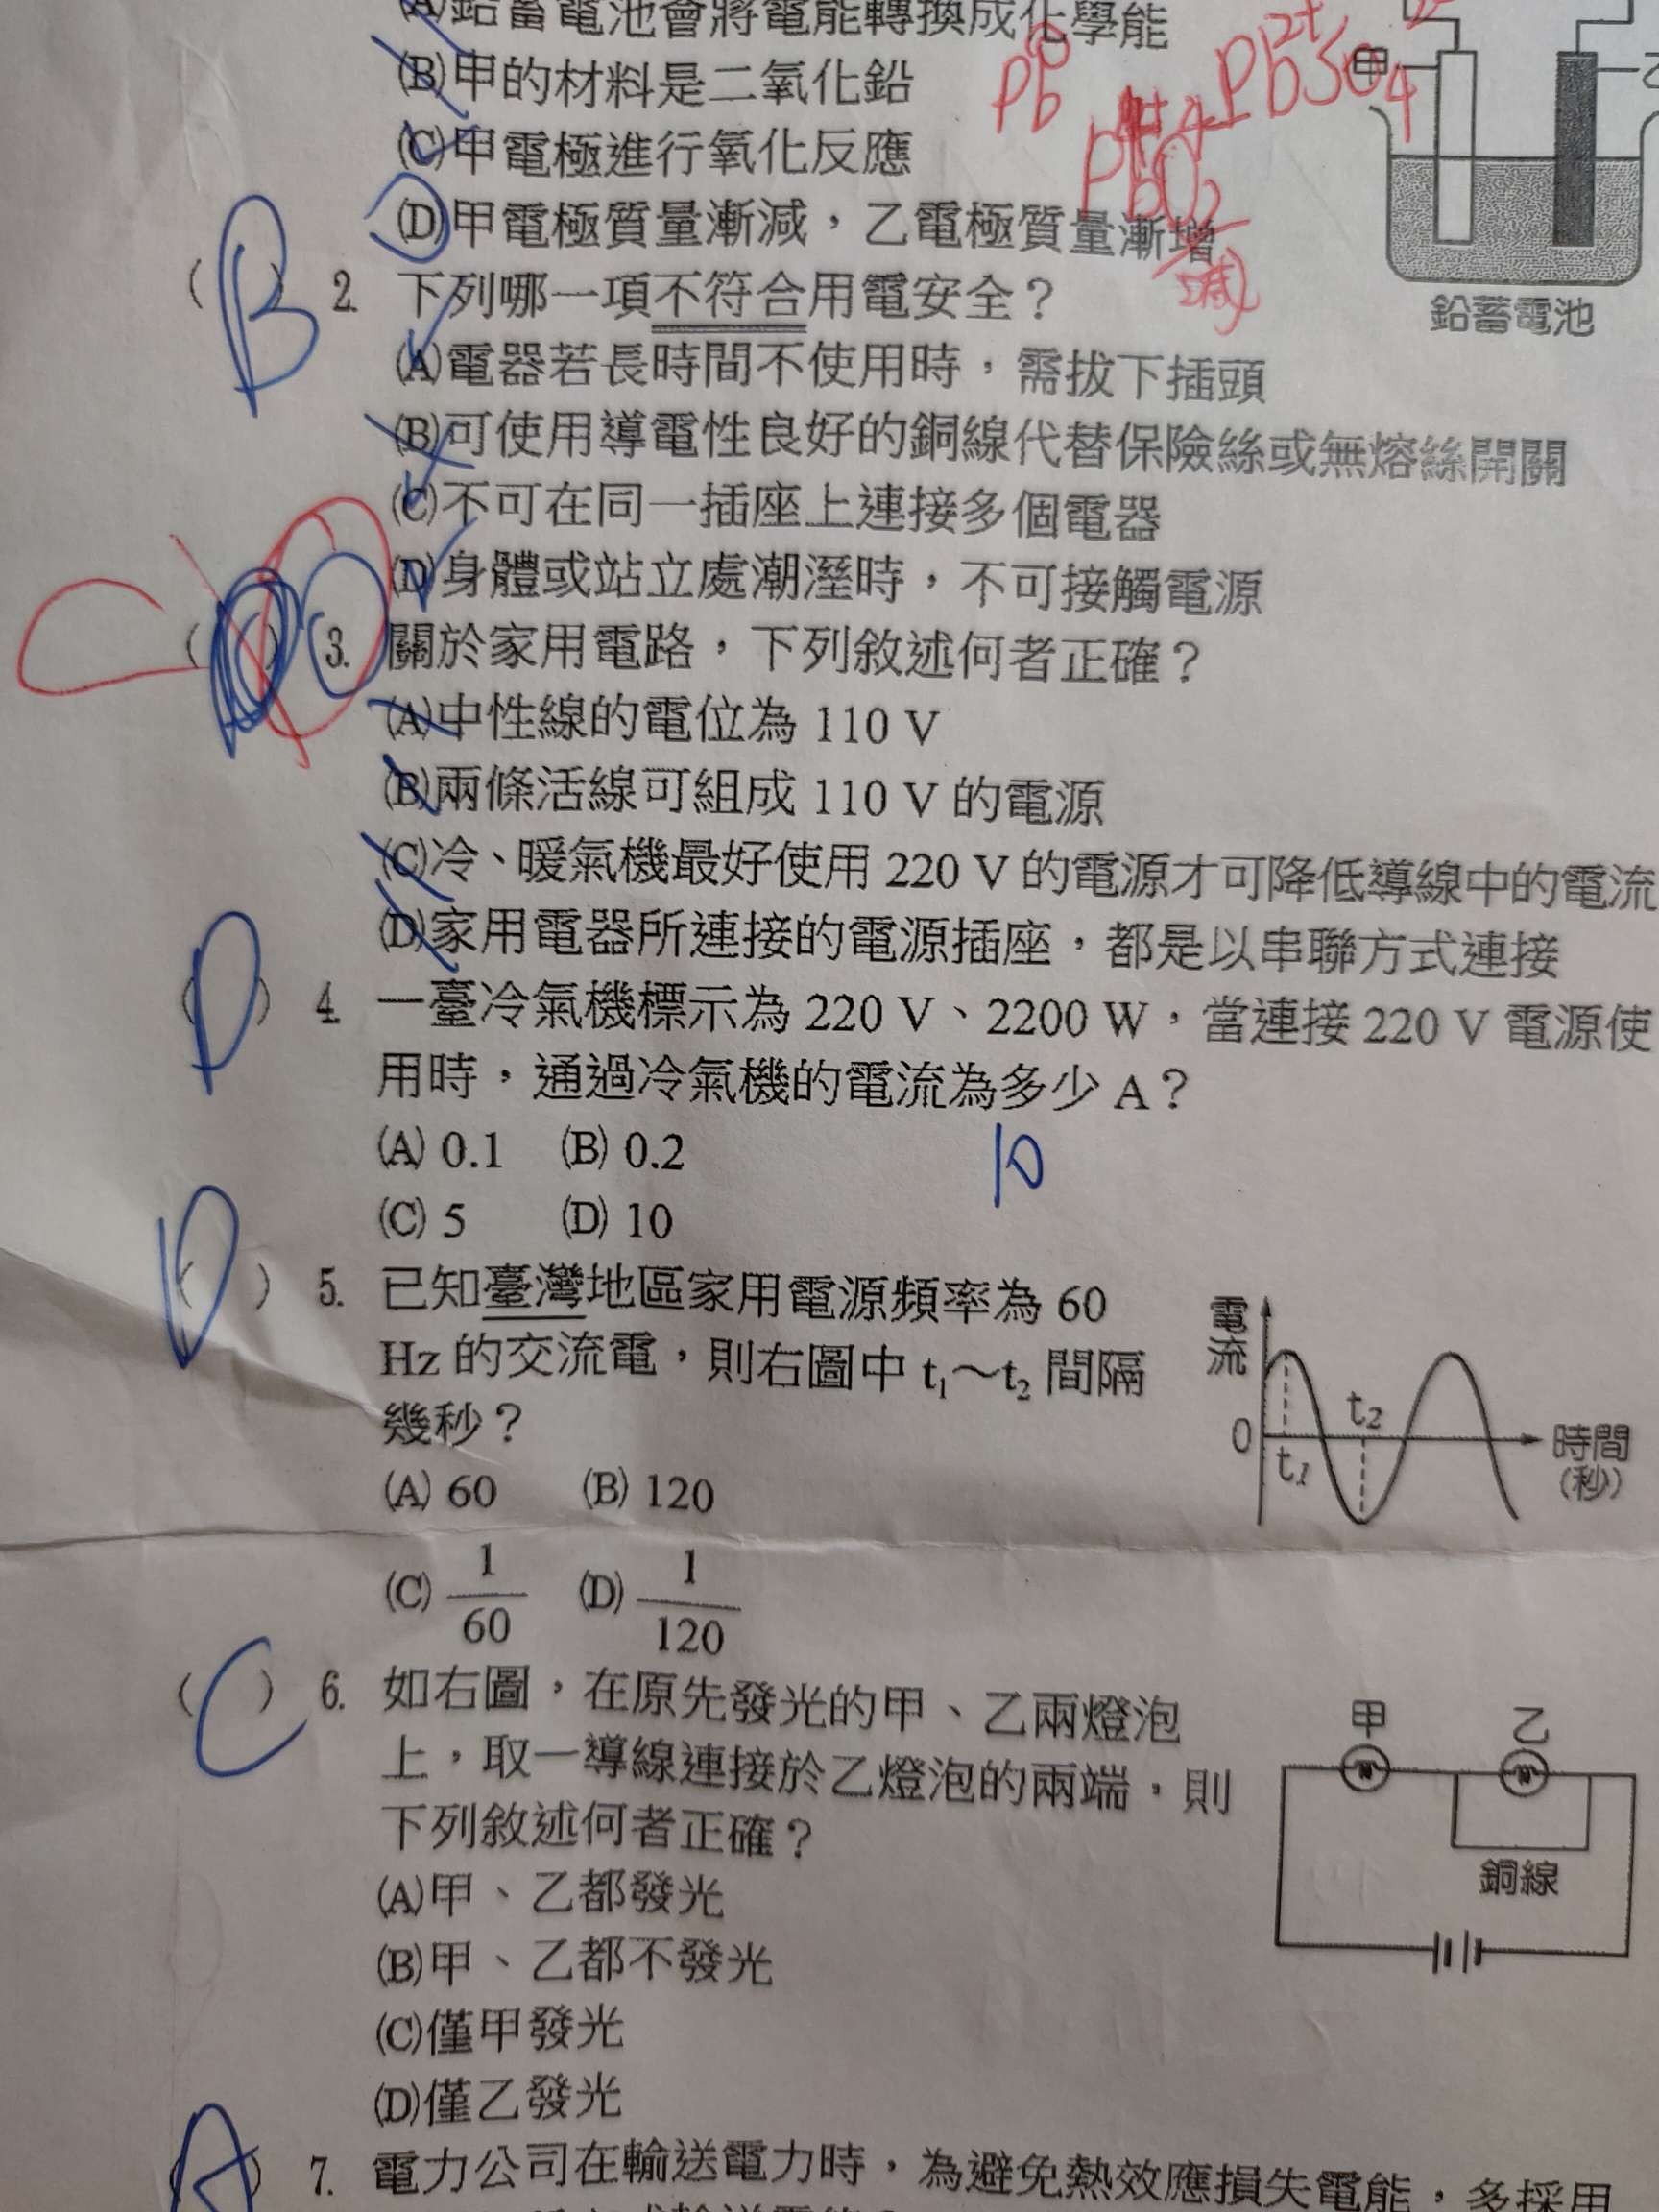 (A)鉛蓄電池會將電能轉換成化學能
(B)甲的材料是二氧化鉛
(C)甲電極進行氧化反應
(D)甲電極質量漸減，乙電極質量漸增
Pb
PbO2
PbSO4
減
甲
乙
鉛蓄電池
B
( ) 2. 下列哪一項不符合用電安全？
(A)電器若長時間不使用時，需拔下插頭
(B)可使用導電性良好的銅線代替保險絲或無熔絲開關
(C)不可在同一插座上連接多個電器
(D)身體或站立處潮溼時，不可接觸電源
C
( ) 3. 關於家用電路，下列敘述何者正確？
(A)中性線的電位為 110 V
(B)兩條活線可組成 110 V 的電源
(C)冷、暖氣機最好使用 220 V 的電源才可降低導線中的電流
(D)家用電器所連接的電源插座，都是以串聯方式連接
D
( ) 4. 一臺冷氣機標示為 220 V、2200 W，當連接 220 V 電源使
用時，通過冷氣機的電流為多少 A？
(A) 0.1 (B) 0.2
10
(C) 5 (D) 10
D
( ) 5. 已知臺灣地區家用電源頻率為 60
Hz 的交流電，則右圖中 t₁～t₂ 間隔
幾秒？
(A) 60 (B) 120
(C) 1/60 (D) 1/120
電流
0
t₁
t₂
時間
(秒)
C
( ) 6. 如右圖，在原先發光的甲、乙兩燈泡
上，取一導線連接於乙燈泡的兩端，則
下列敘述何者正確？
(A)甲、乙都發光
(B)甲、乙都不發光
(C)僅甲發光
(D)僅乙發光
甲
乙
銅線
A
( ) 7. 電力公司在輸送電力時，為避免熱效應損失電能，多採用